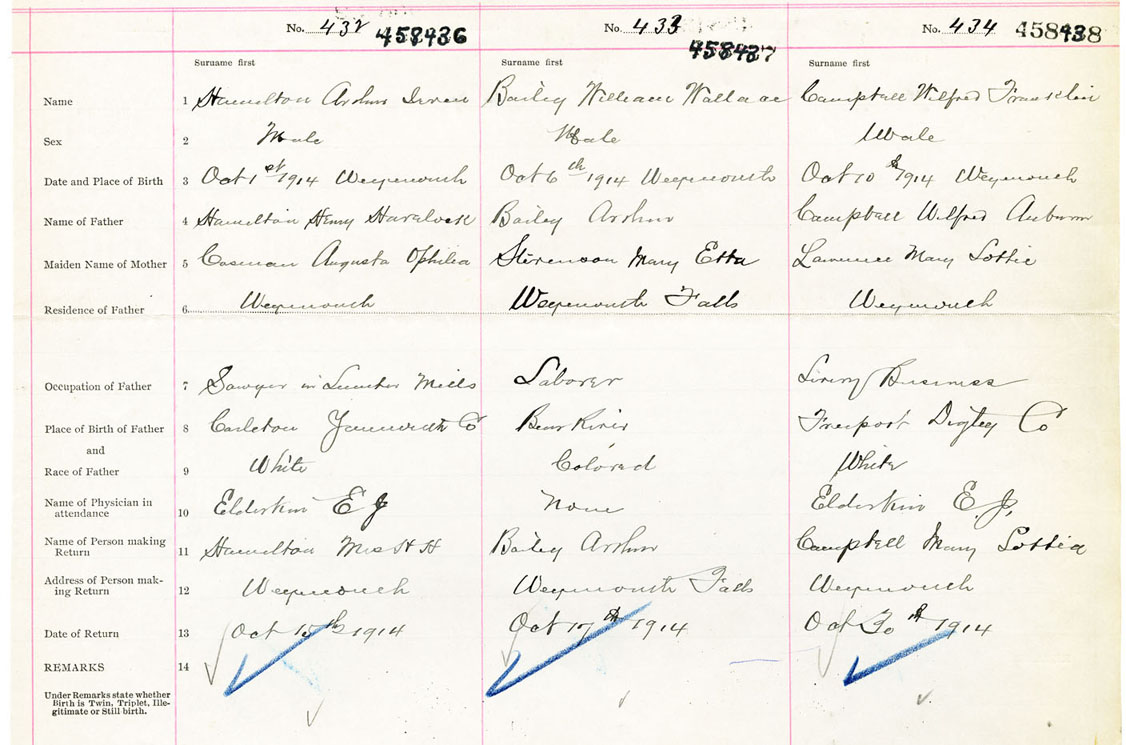 No. 432 458436 No. 433 458437 No. 434 458438
Surname first Surname first Surname first
Name 1 Hamilton Arthur Bailey William Wallace Campbell Wilfred Franklin
Sex 2 Male Male Male
Date and Place of Birth 3 Oct 1st 1914 Weymouth Oct 6th 1914 Weymouth Oct 10th 1914 Weymouth
Name of Father 4 Hamilton Henry Havelock Bailey Arthur Campbell Wilfred Auburn
Maiden Name of Mother 5 Cosman Augusta Ophilia Stevenson Mary Etta Lawrence Mary Lottie
Residence of Father 6 Weymouth Weymouth Falls Weymouth
Occupation of Father 7 Sawyer in Lumber Mills Laborer Livery Business
Place of Birth of Father 8 Carleton Yarmouth Co Bear River Freeport Digby Co
and
Race of Father 9 White Colored White
Name of Physician in
attendance 10 Elderkin E J None Elderkin E. J.
Name of Person making
Return 11 Hamilton Mrs H H Bailey Arthur Campbell Mary Lottie
Address of Person mak-
ing Return 12 Weymouth Weymouth Falls Weymouth
Date of Return 13 Oct 15th 1914 Oct 17th 1914 Oct 30th 1914
REMARKS 14
Under Remarks state whether
Birth is Twin, Triplet, Ille-
gitimate or Still birth.